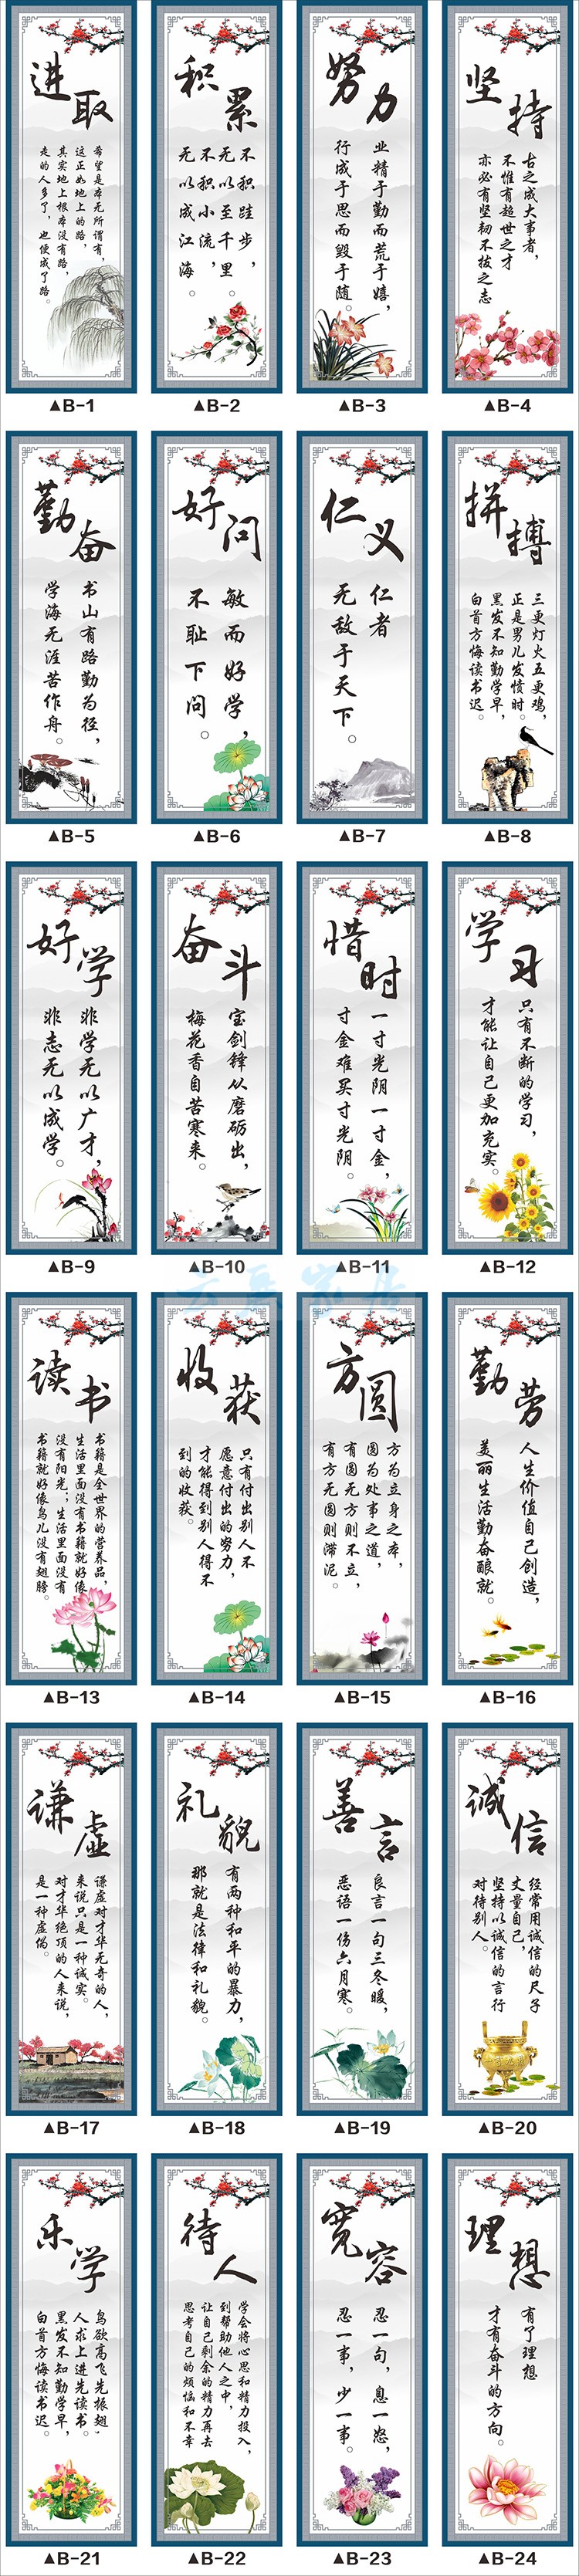 进取
希望是本无所谓有，
这正如地上的路，
其实地上根本没有路，
走的人多了，也便成了路。
▲B-1
积累
不积跬步，
无以至千里。
不积小流，
无以成江海。
▲B-2
努力
业精于勤而荒于嬉，
行成于思而毁于随。
▲B-3
坚持
古之成大事者，
不惟有超世之才
亦必有坚韧不拔之志
▲B-4
勤奋
书山有路勤为径，
学海无涯苦作舟。
▲B-5
好问
敏而好学，
不耻下问。
▲B-6
仁义
仁者
无敌于天下。
▲B-7
拼搏
三更灯火五更鸡，
正是男儿发愤时。
黑发不知勤学早，
白首方悔读书迟。
▲B-8
好学
非学无以广才，
非志无以成学。
▲B-9
奋斗
宝剑锋从磨砺出，
梅花香自苦寒来。
▲B-10
惜时
一寸光阴一寸金，
寸金难买寸光阴。
▲B-11
学习
只有不断的学习，
才能让自己更加充实。
▲B-12
读书
书籍是全世界的营养品，
生活里面没有书籍就好像
没有阳光；生活里面没有
书籍就好像鸟儿没有翅膀。
▲B-13
收获
只有付出别人不
愿意付出的努力，
才能得到别人得不
到的收获。
▲B-14
方圆
方为立身之本，
圆为处事之道，
有圆无方则不立，
有方无圆则滞泥。
▲B-15
勤劳
人生价值自己创造，
美丽生活勤奋酿就。
▲B-16
谦虚
谦虚对才华无奇的人，
来说只是一种诚实。
对才华绝顶的人来说，
是一种虚伪。
▲B-17
礼貌
有两种和平的暴力，
那就是法律和礼貌。
▲B-18
善言
良言一句三冬暖，
恶语一伤六月寒。
▲B-19
诚信
经常用诚信的尺子
丈量自己，
坚持以诚信的言行
对待别人。
▲B-20
乐学
鸟欲高飞先振翅，
人求上进先读书。
黑发不知勤学早，
白首方悔读书迟。
▲B-21
待人
学会将心思和精力投入，
到帮助他人之中，
让自己剩余的精力再去
思考自己的烦恼和不幸
▲B-22
宽容
忍一句，息一怒，
忍一事，少一事。
▲B-23
理想
有了理想
才有奋斗的方向。
▲B-24